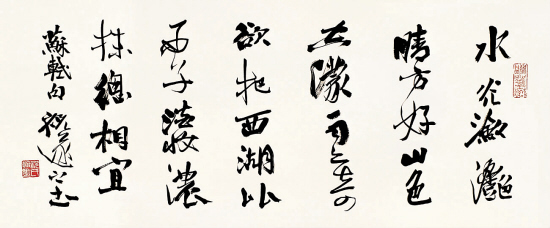 水光瀲灧
晴方好山色
空濛雨亦奇
欲把西湖比
西子淡妝濃
抹總相宜
蘇軾句